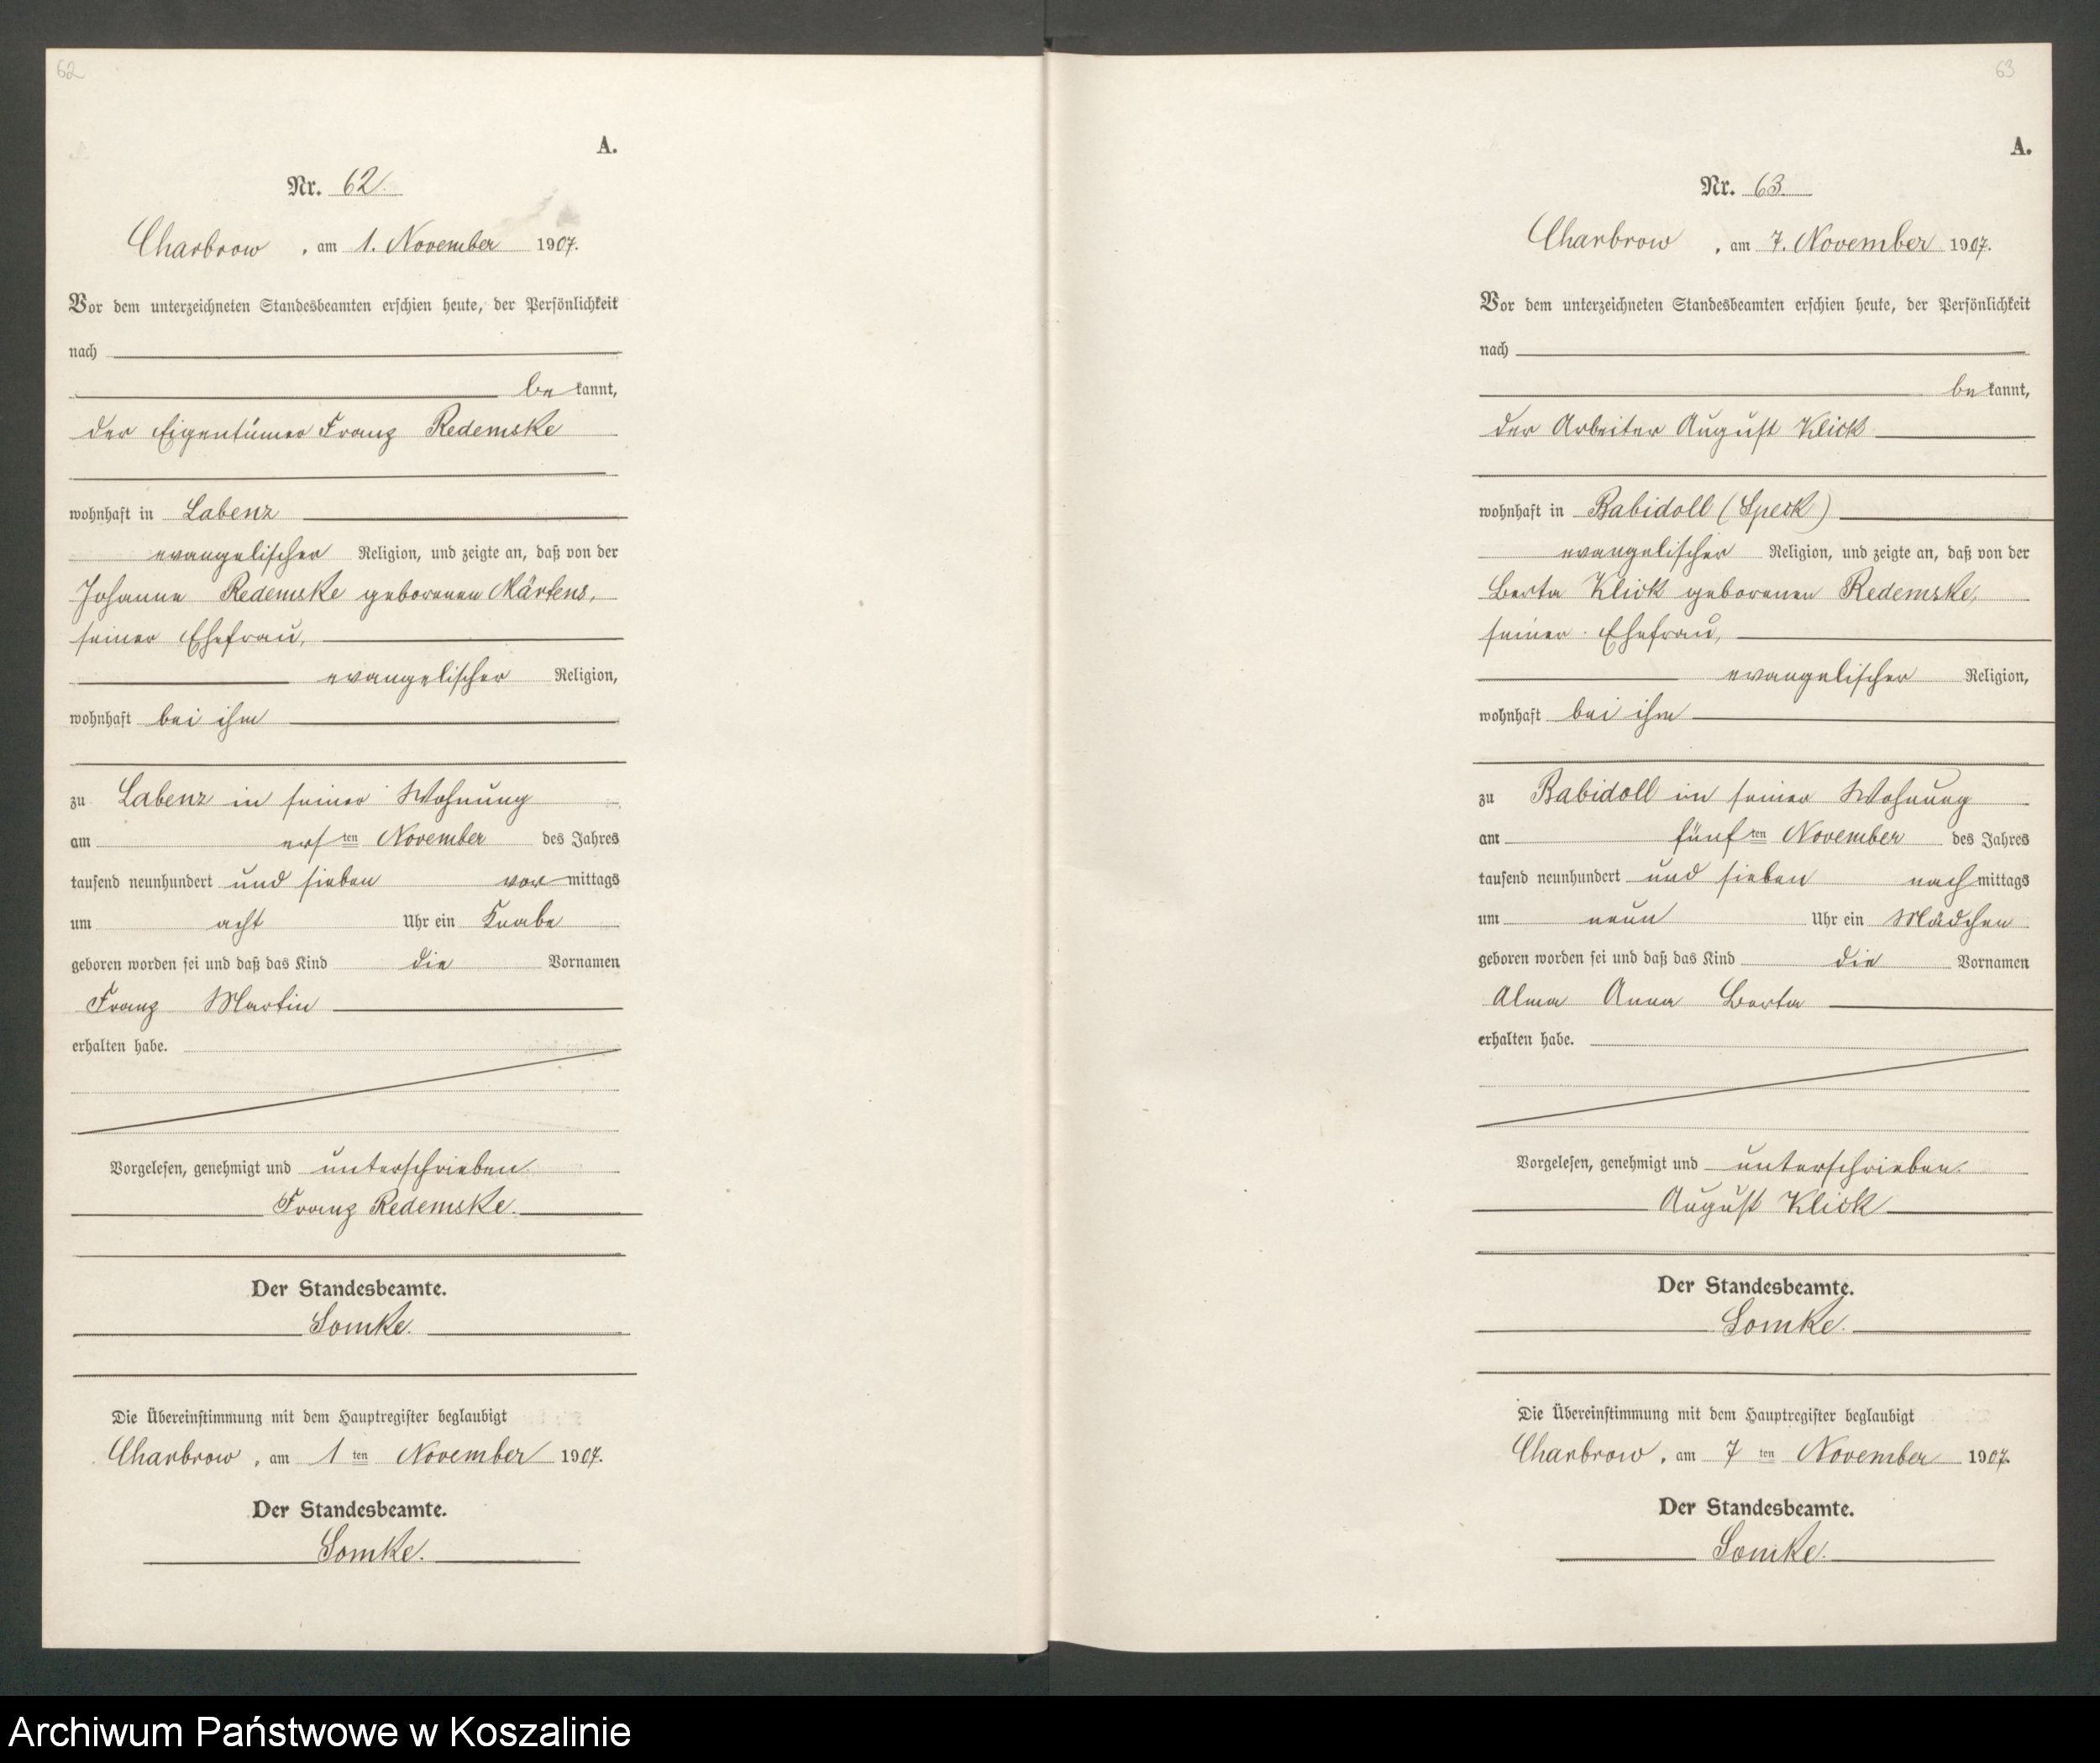 62
A.
Nr. 62.
Charbrow, am 1. November 1907.
Vor dem unterzeichneten Standesbeamten erschien heute, der Persönlichkeit
nach
be kannt,
der Eigentümer Franz Redemske
wohnhaft in Labenz
evangelischer Religion, und zeigte an, daß von der
Johanne Redemske geborenen Märtens,
seiner Ehefrau,
evangelischer Religion,
wohnhaft bei ihm
zu Labenz in seiner Wohnung
am ersten November des Jahres
tausend neunhundert und sieben vormittags
um acht Uhr ein Knabe
geboren worden sei und daß das Kind die Vornamen
Franz Martin
erhalten habe.
Vorgelesen, genehmigt und unterschrieben.
Franz Redemske.
Der Standesbeamte.
Somke.
Die Übereinstimmung mit dem Hauptregister beglaubigt
Charbrow, am 1ten November 1907.
Der Standesbeamte.
Somke.
63
A.
Nr. 63.
Charbrow, am 7. November 1907.
Vor dem unterzeichneten Standesbeamten erschien heute, der Persönlichkeit
nach
be kannt,
der Arbeiter August Klick
wohnhaft in Babidoll (Speck)
evangelischer Religion, und zeigte an, daß von der
Berta Klick geborenen Redemske,
seiner Ehefrau,
evangelischer Religion,
wohnhaft bei ihm
zu Babidoll in seiner Wohnung
am fünften November des Jahres
tausend neunhundert und sieben nachmittags
um neun Uhr ein Mädchen
geboren worden sei und daß das Kind die Vornamen
Alma Anna Berta
erhalten habe.
Vorgelesen, genehmigt und unterschrieben.
August Klick
Der Standesbeamte.
Somke.
Die Übereinstimmung mit dem Hauptregister beglaubigt
Charbrow, am 7ten November 1907.
Der Standesbeamte.
Somke.
Archiwum Państwowe w Koszalinie